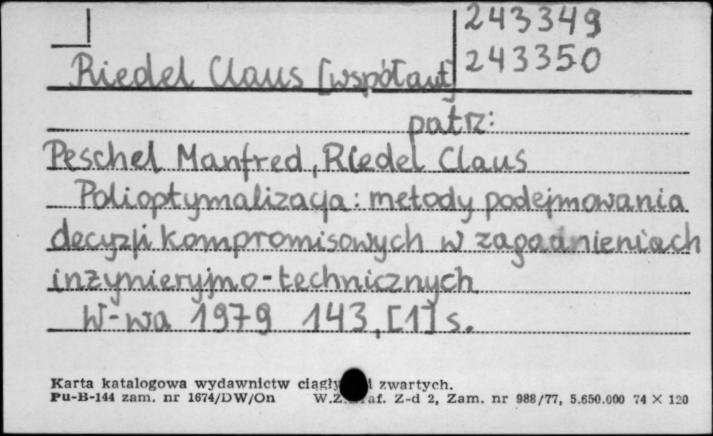 243349
243350
Riedel Claus [współaut]
patrz:
Peschel Manfred, Riedel Claus
Polioptymalizacja: metody podejmowania
decyzji kompromisowych w zagadnieniach
inżynieryjno-technicznych
W-wa 1979 143, [1] s.
Karta katalogowa wydawnictw zwartych.
Pu-B-144 zam. nr 1674/DW/On W.Z. Z-d 2, Zam. nr 988/77, 5.650.000 74 × 120